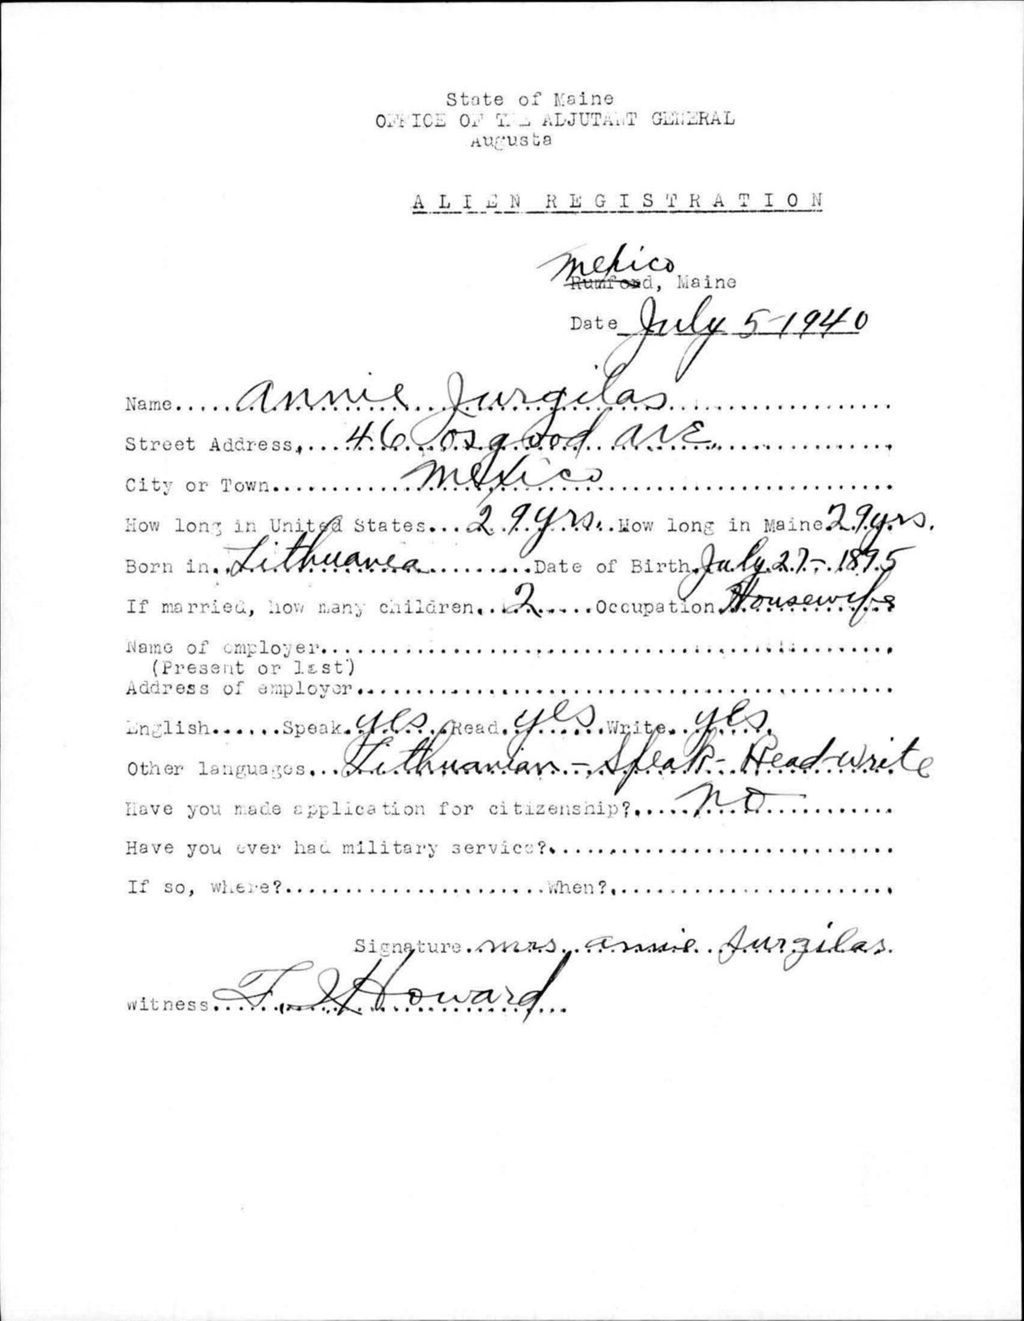 State of Maine
OFFICE OF THE ADJUTANT GENERAL
Augusta
ALIEN REGISTRATION
Mexico
Rumford, Maine
Date July 5-1940
Name.....Annie Jurgilas
Street Address.....46 Osgood Ave.
City or Town.....Mexico
How long in United States...29 yrs...How long in Maine 29 yrs.
Born in..Lithuania.....Date of Birth.July 27-1895
If married, how many children..2.....Occupation.Housewife
Name of employer.....
(Present or last)
Address of employer.....
English......Speak.yes..Read.yes..Write..yes.
Other languages...Lithuanian-Speak-Read-Write
Have you made application for citizenship?.....No
Have you ever had military service?.....
If so, where?.....When?.....
Signature..Mrs. Annie Jurgilas.
Witness..F. J. Howard